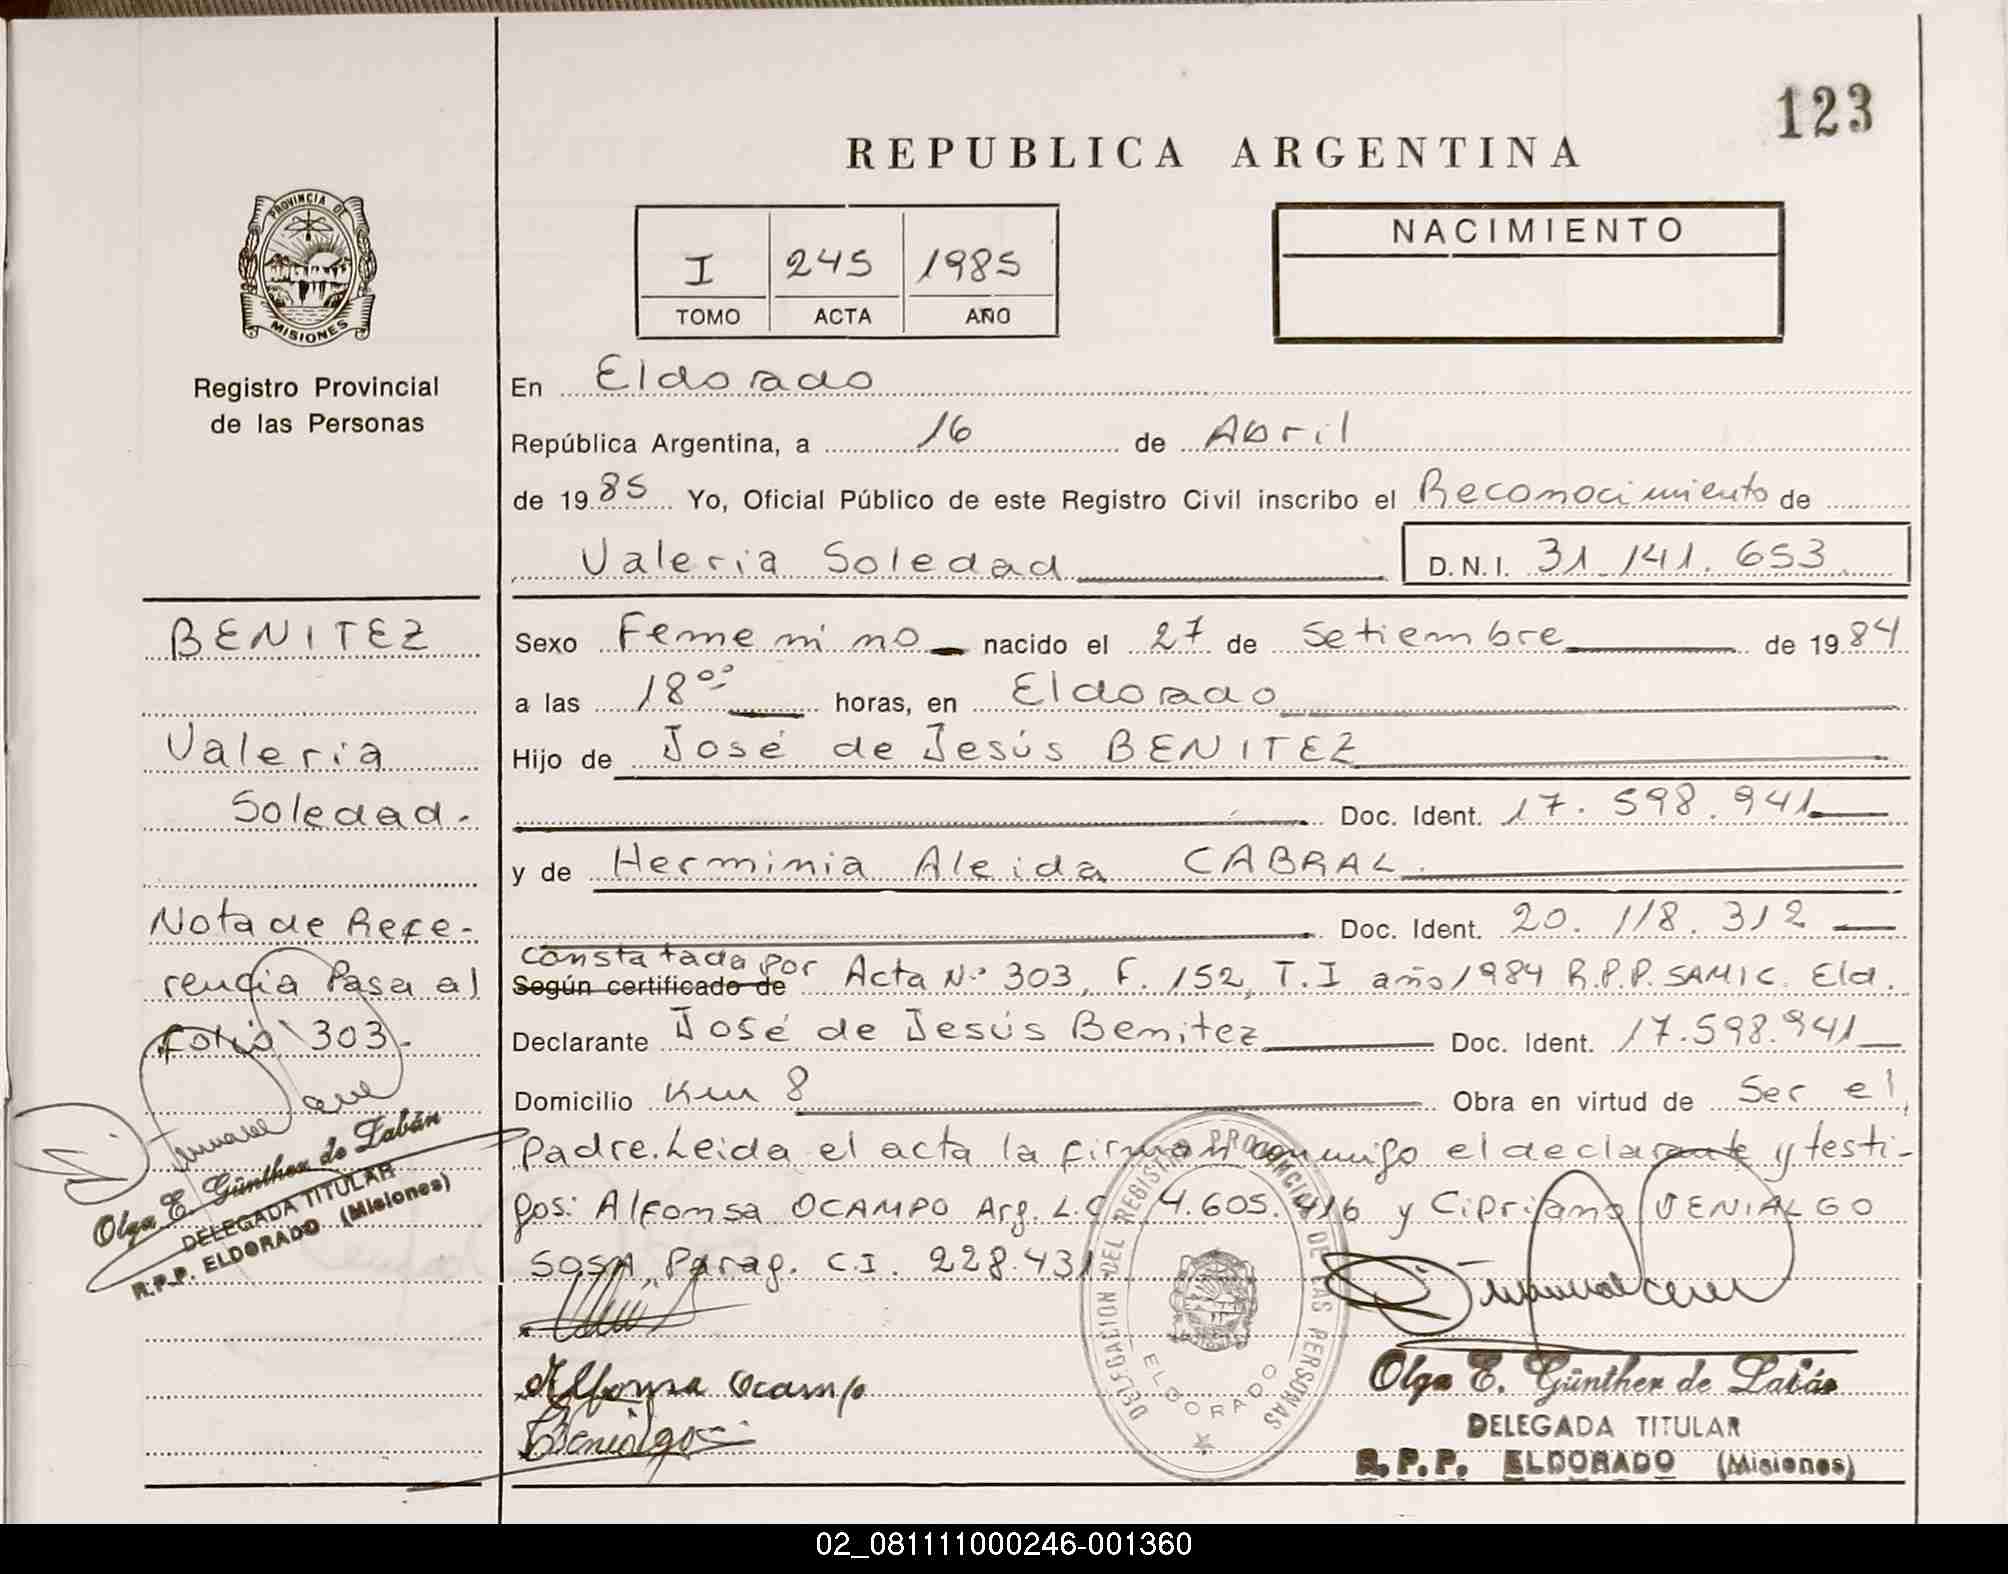 123
REPUBLICA ARGENTINA
PROVINCIA DE
MISIONES
Registro Provincial
de las Personas
I 245 1985
TOMO ACTA AÑO
NACIMIENTO
En Eldorado
República Argentina, a 16 de Abril
de 1985 Yo, Oficial Público de este Registro Civil inscribo el Reconocimiento de
Valeria Soledad D.N.I. 31.141.653
BENITEZ
Valeria
Soledad.
Nota de Refe-
rencia Pasa al
folio 303.
Olga E. Günther de Labán
DELEGADA TITULAR
R.P.P. ELDORADO (Misiones)
Sexo Femenino nacido el 27 de Setiembre de 1984
a las 18⁰⁰ horas, en Eldorado
Hijo de José de Jesús BENITEZ
Doc. Ident. 17.598.941
y de Herminia Aleida CABRAL.
Doc. Ident. 20.118.312
Constatada por
Según certificado de Acta Nº 303, F. 152, T.I año 1984 R.P.P. SAMIC. Eld.
Declarante José de Jesús Benitez Doc. Ident. 17.598.941
Domicilio Km 8 Obra en virtud de Ser el
Padre. Leida el acta la firman conmigo el declarante y testi-
gos: Alfonsa OCAMPO Arg. L.C. 4.605.416 y Cipriano VENIALGO
SOSA, Parag. C.I. 228.431
Alfonsa Ocampo
DELEGACION DEL REGISTRO PROVINCIAL DE LAS PERSONAS
ELDORADO
Olga E. Günther de Labán
DELEGADA TITULAR
R.P.P. ELDORADO (Misiones)
02_081111000246-001360